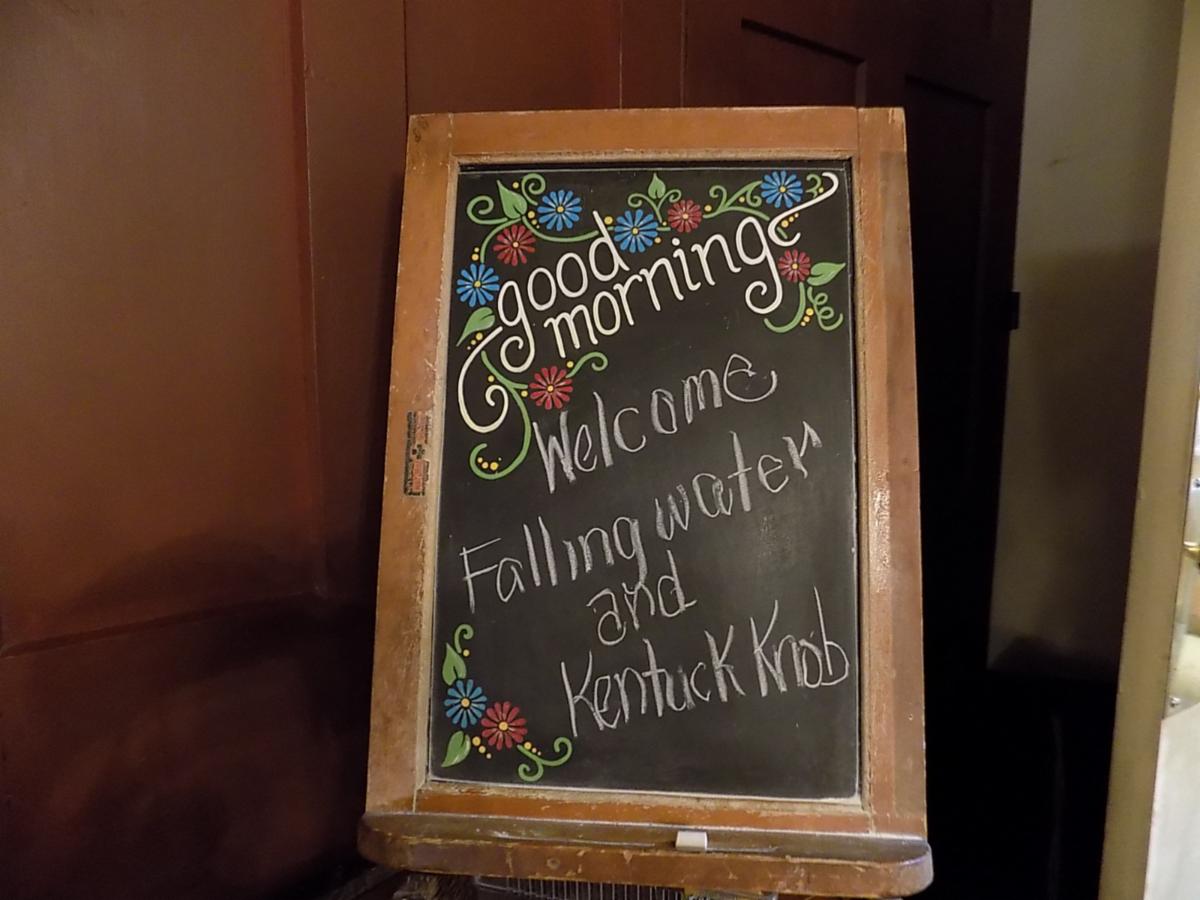 good
morning
Welcome
Falling water
and
Kentuck Knob